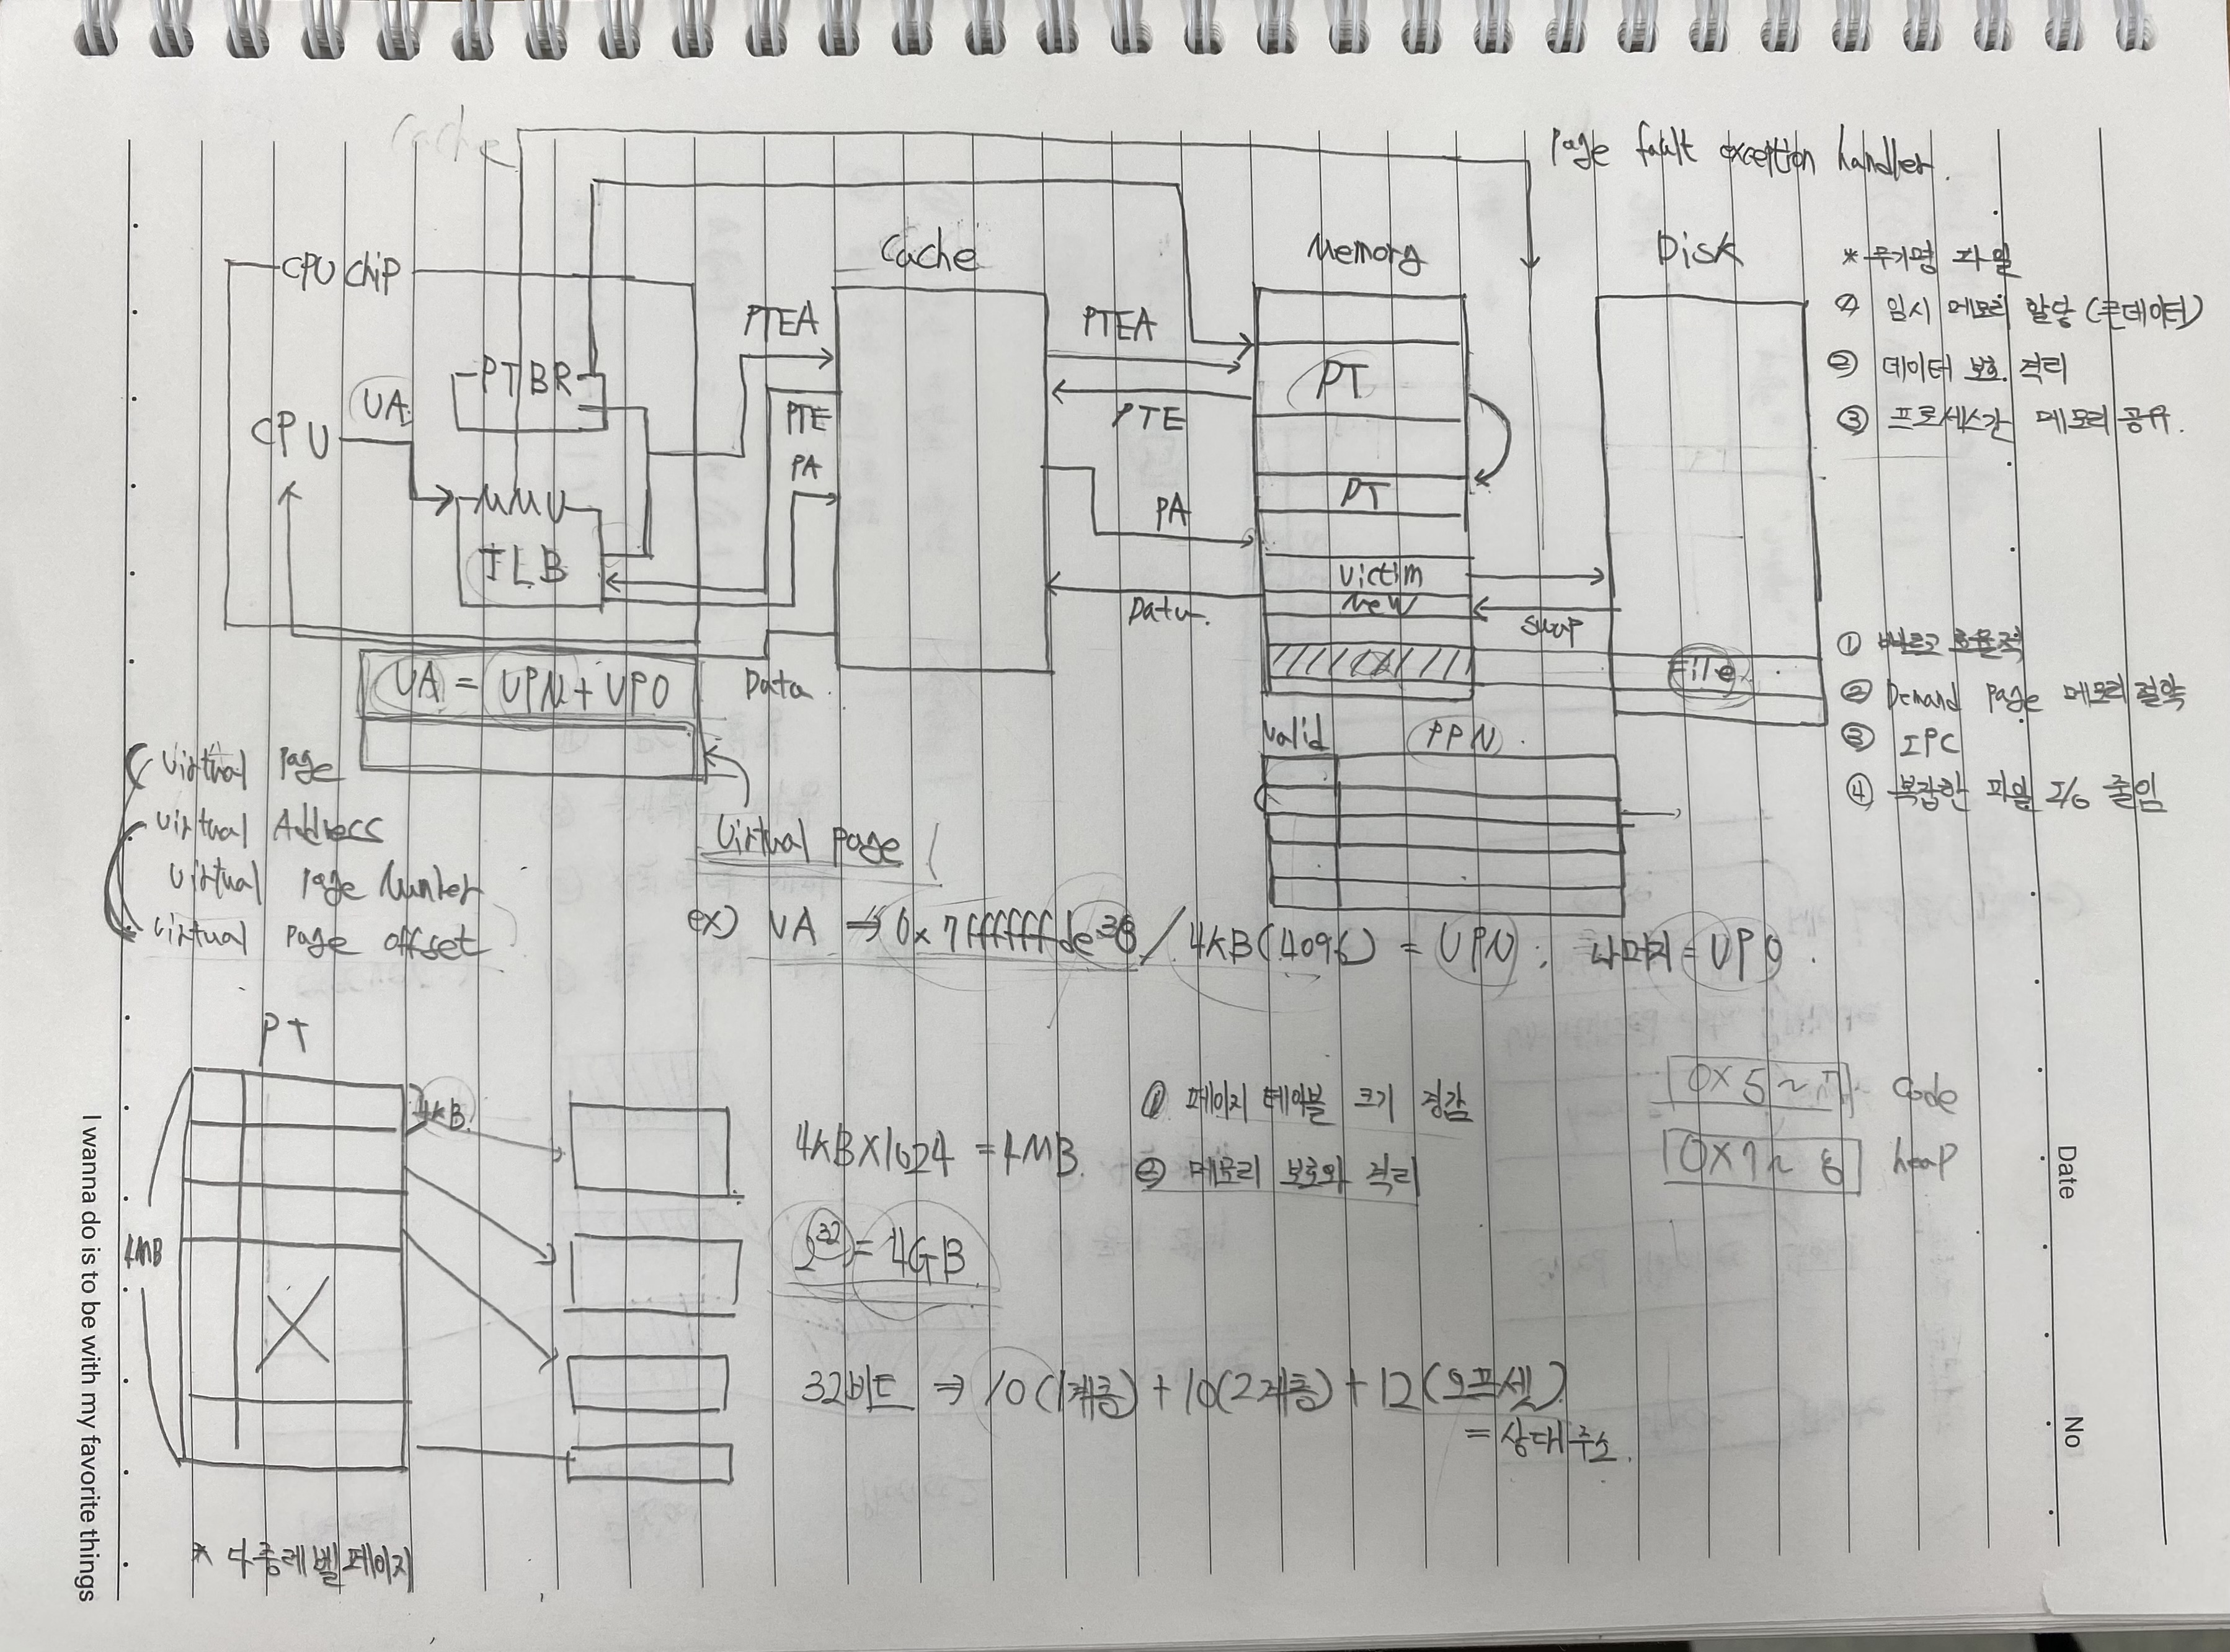 Page fault exception handler.
Cache
Memory
Disk
CPU chip
* 무기명 파일
① 임시 메모리 할당 (큰데이터)
② 데이터 보호. 격리
③ 프로세스간 메모리 공유.
PTEA
PTEA
PTBR
PT
VA
CPU
PTE
PTE
PA
MMU
PT
PA
TLB
victim
new
Data
swap
① 빠르고 효율적
File
VA = VPN + VPO
Data.
② Demand page 메모리 절약
valid
PPN
③ IPC
④ 복잡한 파일 I/O 줄임
Virtual Page
Virtual Address
Virtual page
Virtual Page Number
Virtual page offset
ex) VA ⇒ 0x7fffffffde38 / 4KB(4096) = VPN, 나머지 = VPO.
PT
4KB
① 페이지 테이블 크기 경감
Code
4KB×1024 = 4MB.
② 메모리 보호와 격리
0x7~8
heap
4MB
2³² = 4GB
32비트 ⇒ 10(1계층) + 10(2계층) + 12(오프셋)
= 상대주소.
* 다중레벨페이지
I wanna do is to be with my favorite things
Date
No